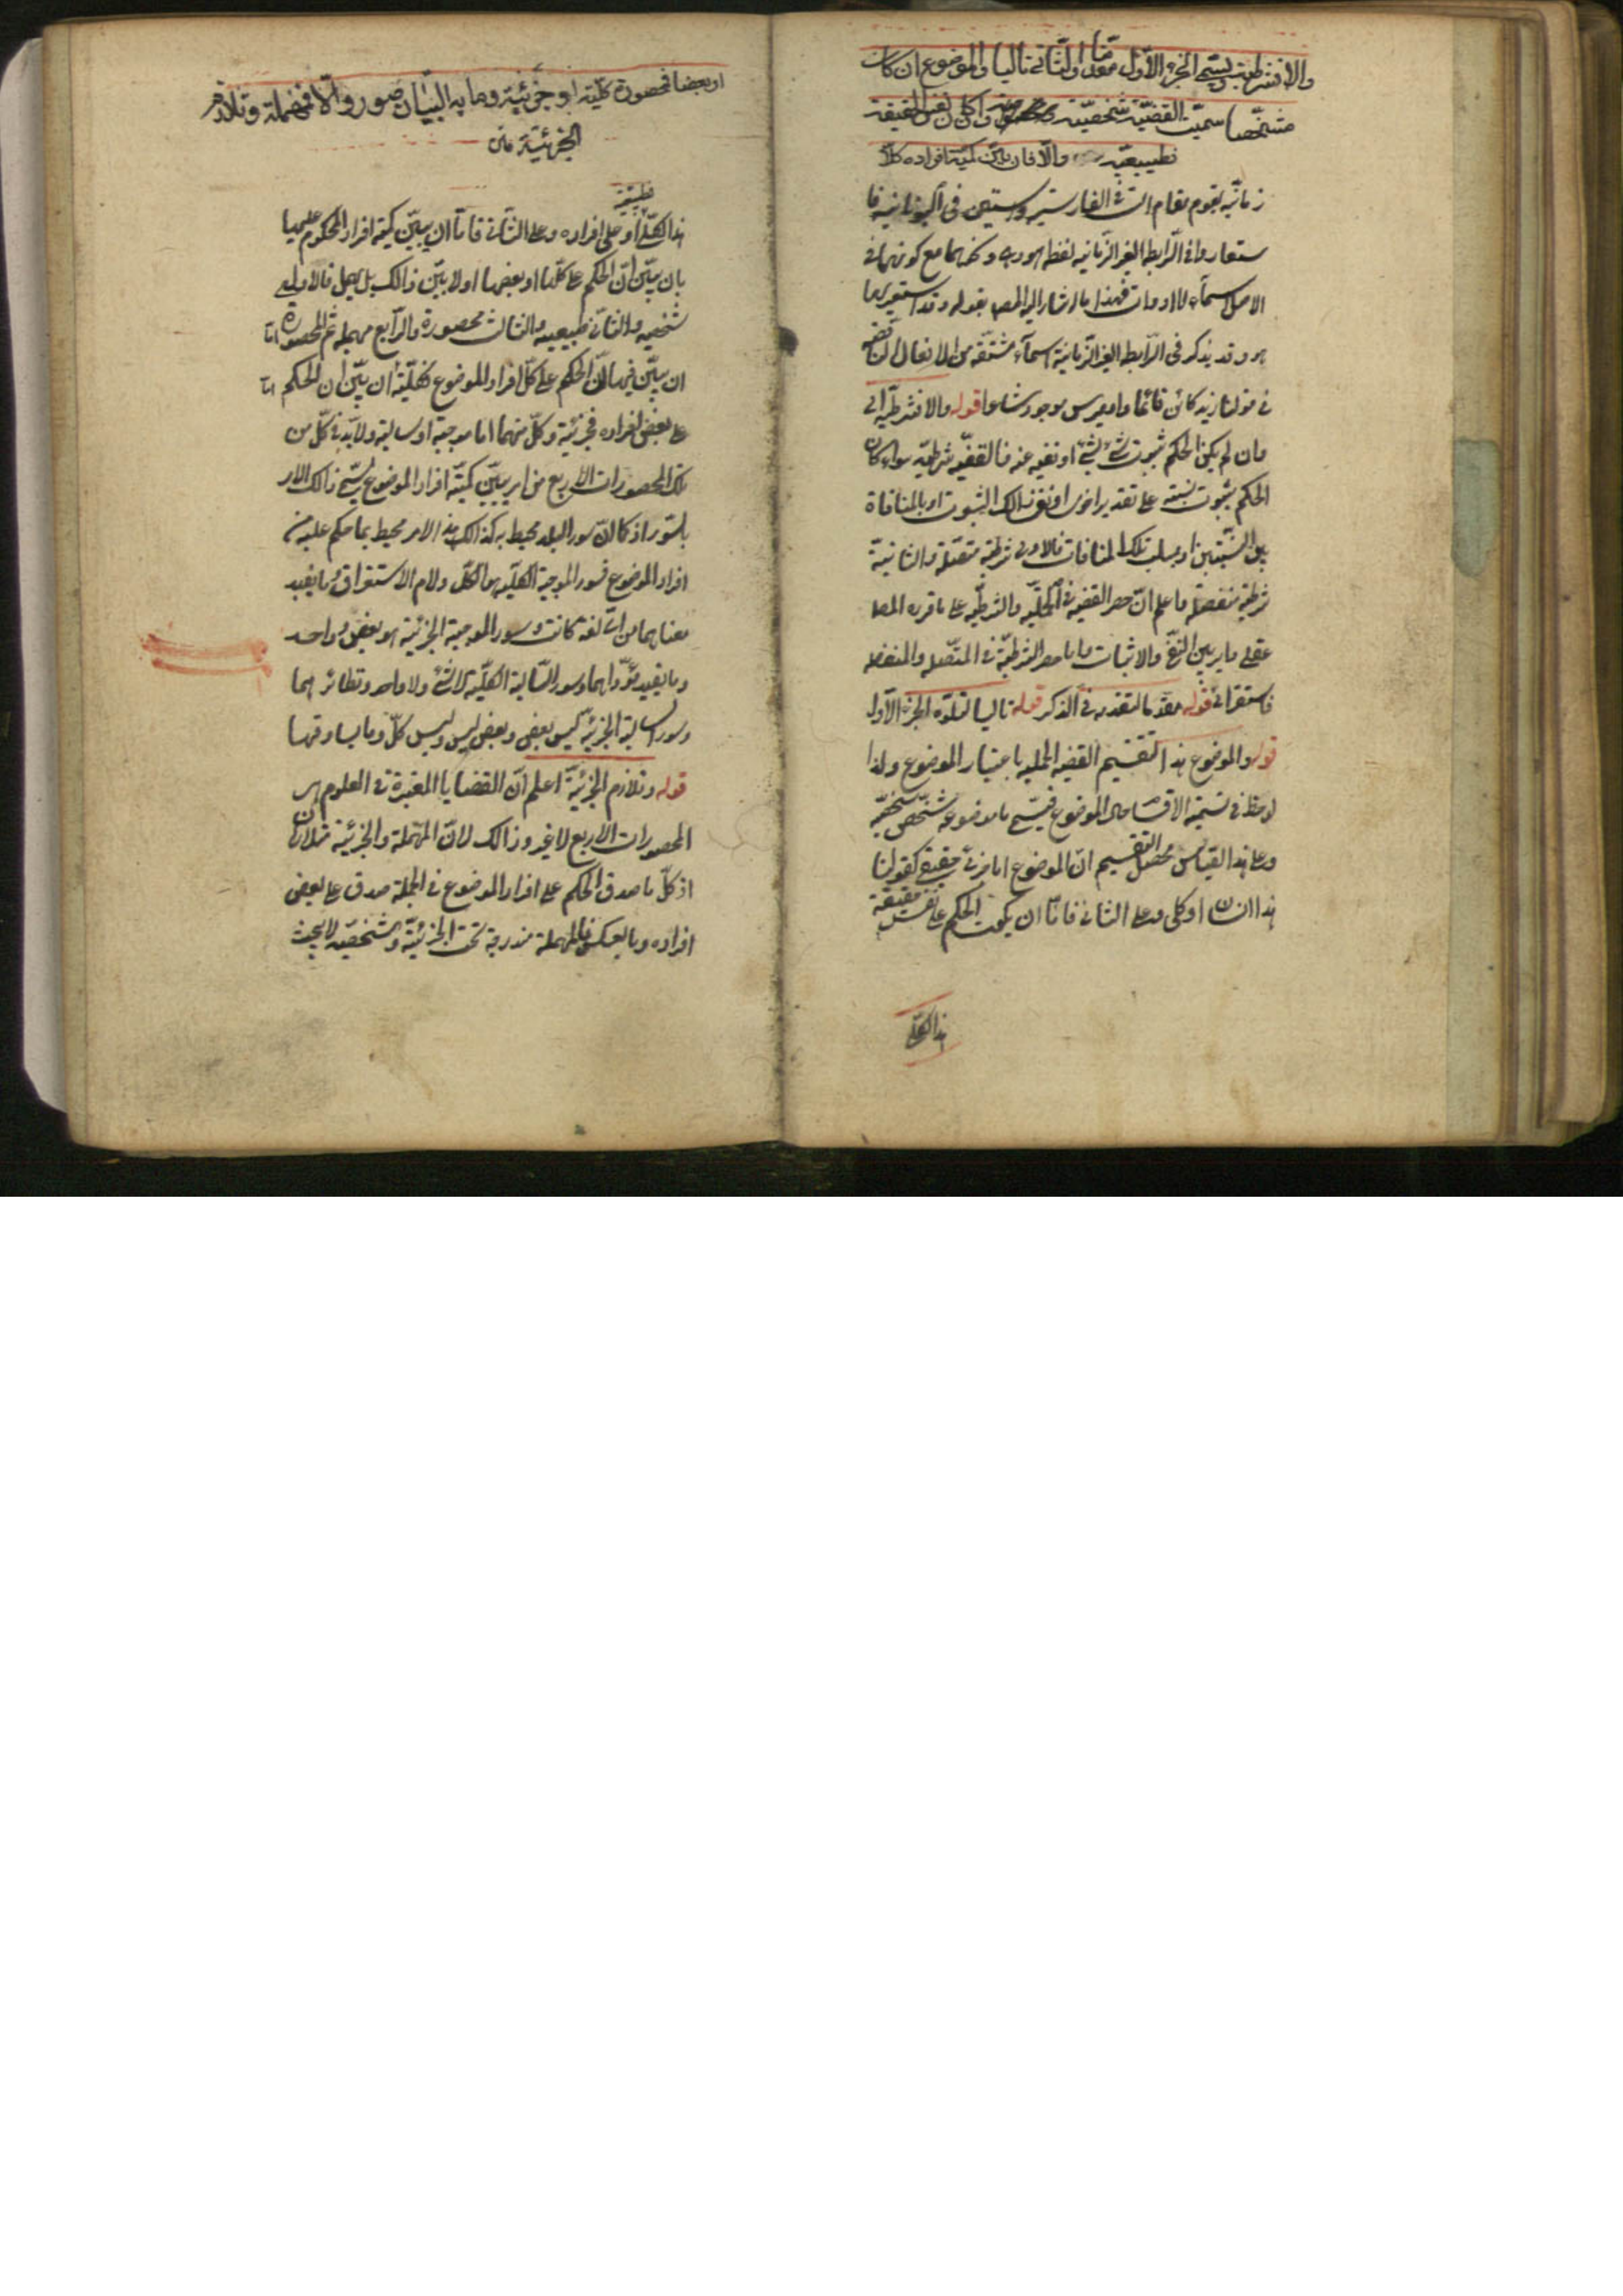 والا فشرطية ويسمى الجزء الاول مقدما والثاني تاليا والموضوع ان كان
مشخصا سميت القضية شخصية ومخصوصة وان كان نفس الحقيقة
فطبيعية والا فان بين كمية افراده كلا
زمانية يقوم مقام است في الفارسية واستين في اليونانية فا
ستعاروا في الرابطة الغير الزمانية لفظة هو وهي ونحوهما مع كونهما في
الاصل اسماء لا ادوات فهذا ما اشار اليه المص بقوله وقد استعير لها
هو وقد يذكر في الرابطة الغير الزمانية اسماء مشتقة من الافعال الناقصه
في قولنا زيد كائن قائما واميرس موجود شاعرا قوله والا فشرطية اي
وان لم يكن الحكم بثبوت شئ لشئ او نفيه عنه فالقضية شرطية سواء كان
الحكم بثبوت نسبته على تقدير اخرى او نفي ذالك الثبوت او بالمنافاة
بين النسبتين او سلب تلك المنافات فالاولى شرطية متصلة والثانية
شرطية منفصلة واعلم ان حصر القضية في الحملية والشرطية على ما قرره المص
عقلي داير بين النفي والاثبات واما حصر الشرطية في المتصله والمنفصله
فاستقرائي قوله مقدما لتقدمه في الذكر قوله تاليا لتلوه الجزء الاول
قوله والموضوع هذا تقسيم القضية الحملية باعتبار الموضوع ولذا
لوحظ في تسمية الاقسام حال الموضوع فيسمى ما موضوعه شخص شخصية
وعلى هذا القياس محصل التقسيم ان الموضوع اما جزئي حقيقي كقولنا
هذا انسان او كلي وعلى الثاني فاما ان يكون الحكم على نفس حقيقة
هذا الكلي
او بعضا فمحصورة كلية او جزئية وما به البيان سور والا فمهملة وتلازم
الجزئية متن
طبيعية
هذا الكلي او على افراده وعلى الثاني فاما ان يبين كمية افراد المحكوم عليها
بان يبين ان الحكم على كلها او بعضها او لا يبين ذالك بل يهمل فالاولى
شخصيه والثاني طبيعيه والثالث محصورة والرابع مهملة ثم المحصورة اما
ان يبين فيها ان الحكم على كل افراد الموضوع فكلية او ان بين ان الحكم اما
على بعض افراده فجزئية وكل منهما اما موجبة او سالبة ولا بد في كل من
تلك المحصورات الاربع من امر يبين كمية افراد الموضوع يسمى ذالك الامر
بالسور اذ كما ان سور البلد محيط به كذالك هذا الامر محيط بما حكم عليه من
افراد الموضوع فسور الموجبة الكلية هو الكل ولام الاستغراق وما يفيد
معناهما من اي لغة كانت وسور الموجبة الجزئية هو بعض وواحد
وما يفيد مؤداهما وسور السالبة الكلية لا شئ ولا واحد ونظائرهما
وسور السالبة الجزئية ليس بعض وبعض ليس وليس كل وما يساوقها
قوله وتلازم الجزئية اعلم ان القضايا المعتبرة في العلوم هي
المحصورات الاربع لا غير وذالك لان المهملة والجزئية متلازمان
اذ كل ما صدق الحكم على افراد الموضوع في الجملة صدق على بعض
افراده وبالعكس فالمهملة مندرجة تحت الجزئية والشخصية لا يبحث